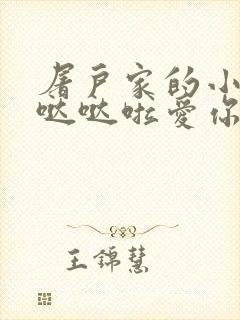 屠户家的小
哒哒啦爱你
王锦慧